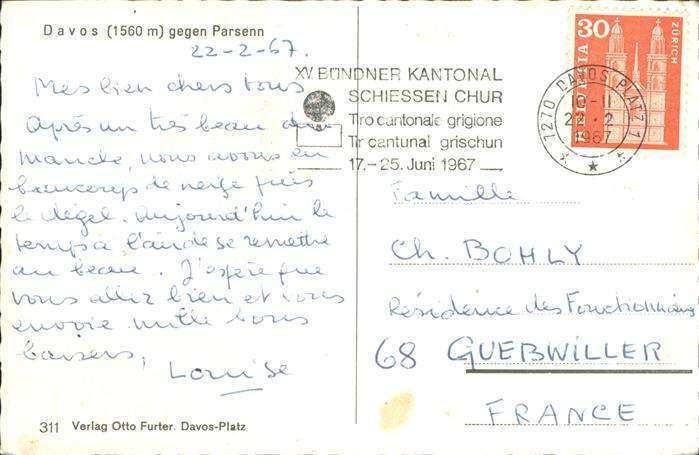 Davos (1560 m) gegen Parsenn
22-2-67.
Mes bien chers tous
Après un très beau di
manche, nous avons eu
beaucoup de neige puis
le dégel. Aujourd'hui le
temps a l'air de se remettre
au beau. J'espère que
vous allez bien et vous
envoie mille bons
baisers,
Louise
311 Verlag Otto Furter. Davos-Platz
XV. BÜNDNER KANTONAL
SCHIESSEN CHUR
Tiro cantonale grigione
Tir cantunal grischun
17.-25. Juni 1967
7270 DAVOS PLATZ 1
10-11
22.-2.
1967
30
HELVETIA
ZÜRICH
Famille
Ch. BOHLY
Résidence des Fonctionnaires
68 GUEBWILLER
FRANCE